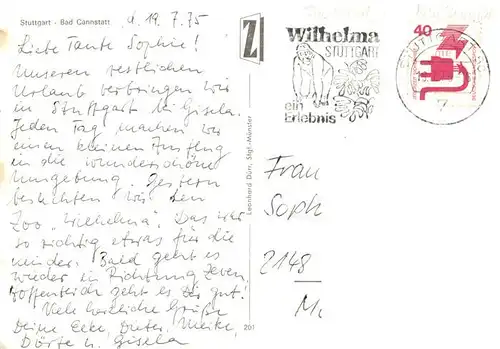 Stuttgart - Bad Cannstatt
d. 19.7.75
Liebe Tante Sophie!
Unseren restlichen
Urlaub verbringen wir
in Stuttgart bei Gisela.
Jeden Tag machen wir
einen kleinen Ausflug
in die wunderschöne
Umgebung. Gestern
besichten wir den
Zoo "Wilhelma". Das war
so richtig etwas für die
Kinder. Bald geht es
wieder in Richtung Zeven.
Hoffentlich geht es Dir gut!
Viele herzliche Grüße
Deine Elke, Dieter, Meike,
Dörte u. Gisela
Leonhard Dürr, Stgt.-Münster
201
Z
Wilhelma
STUTTGART
ein
Erlebnis
40
Frau
Soph
2148